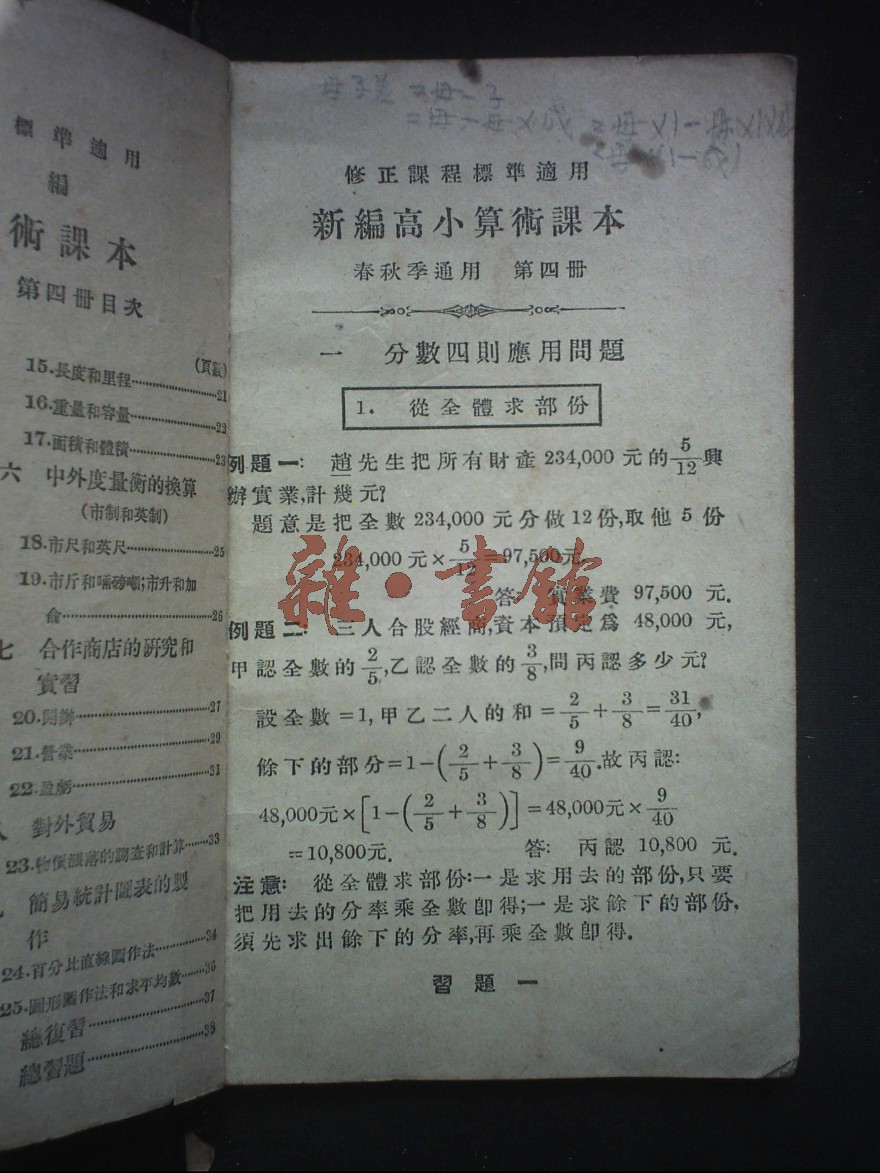 標準適用
編
術課本
第四冊目次
(頁數)
15.長度和里程……21
16.重量和容量……22
17.面積和體積……23
六 中外度量衡的換算
(市制和英制)
18.市尺和英尺……25
19.市斤和噸磅噸;市升和加
侖……26
七 合作商店的研究和
實習
20.開辦……27
21.營業……29
22.盈虧……31
對外貿易
23.物價漲落的調查和計算……33
簡易統計圖表的製
作
24.百分比直線圖作法……34
25.圓形圖作法和求平均數……36
總復習……37
總習題……38
母子差=母-子
修正課程標準適用
新編高小算術課本
春秋季通用 第四冊
一 分數四則應用問題
1. 從全體求部份
例題一: 趙先生把所有財產 234,000 元的 5/12 興
辦實業,計幾元?
題意是把全數 234,000 元分做12份,取他 5 份
234,000 元×5/12=97,500元.
答: 實業費 97,500 元.
例題二: 三人合股經商,資本預定爲 48,000 元,
甲認全數的 2/5,乙認全數的 3/8,問丙認多少元?
設全數=1,甲乙二人的和=2/5+3/8=31/40,
餘下的部分=1-(2/5+3/8)=9/40.故丙認:
48,000元×[1-(2/5+3/8)]=48,000元×9/40
=10,800元. 答: 丙認 10,800 元.
注意: 從全體求部份:一是求用去的部份,只要
把用去的分率乘全數卽得;一是求餘下的部份,
須先求出餘下的分率,再乘全數卽得.
習題一
雜·書館